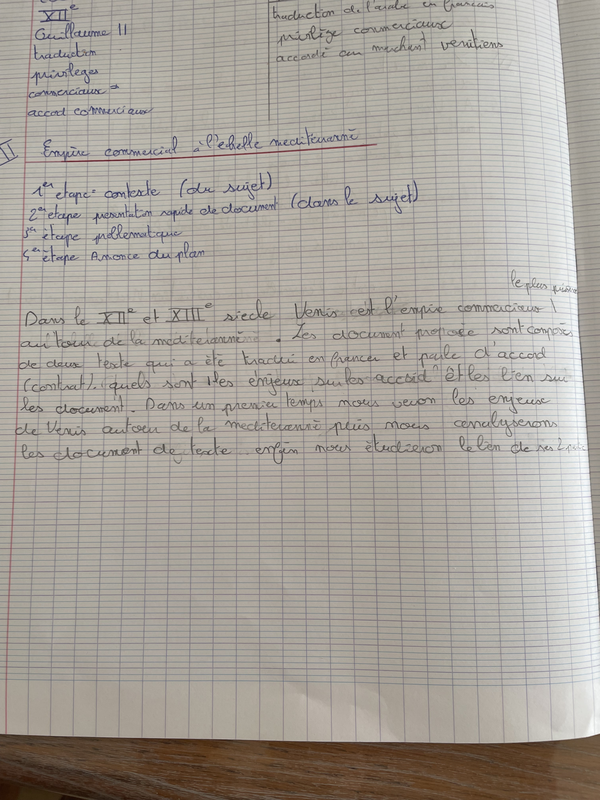 XIIe
Guillaume II
traduction
privilèges
commerciaux =
accord commerciaux
traduction de l'arabe en francais
privilège commerciaux
accordé au marchant venitiens
II Empire commercial à l'échelle mediterranné
1er étape = contexte (du sujet)
2er étape présentation rapide de document (dans le sujet)
3er étape problematique
4er étape Annonce du plan
le plus
Dans le XIIe et XIIIe siecle Venis est l'empire commerciaux
autour de la mediteranné. Les document proposé sont compos
de deux texte qui a été tradui en francer et parle d'accord
(contrat). quels sont les enjeux sur les accord et les lien sur
les document. Dans un premier temps nous veron les enjeux
de Venis autour de la mediteranné puis nous analyserons
les document de texte enfin nous étudieron le lien de ses 2